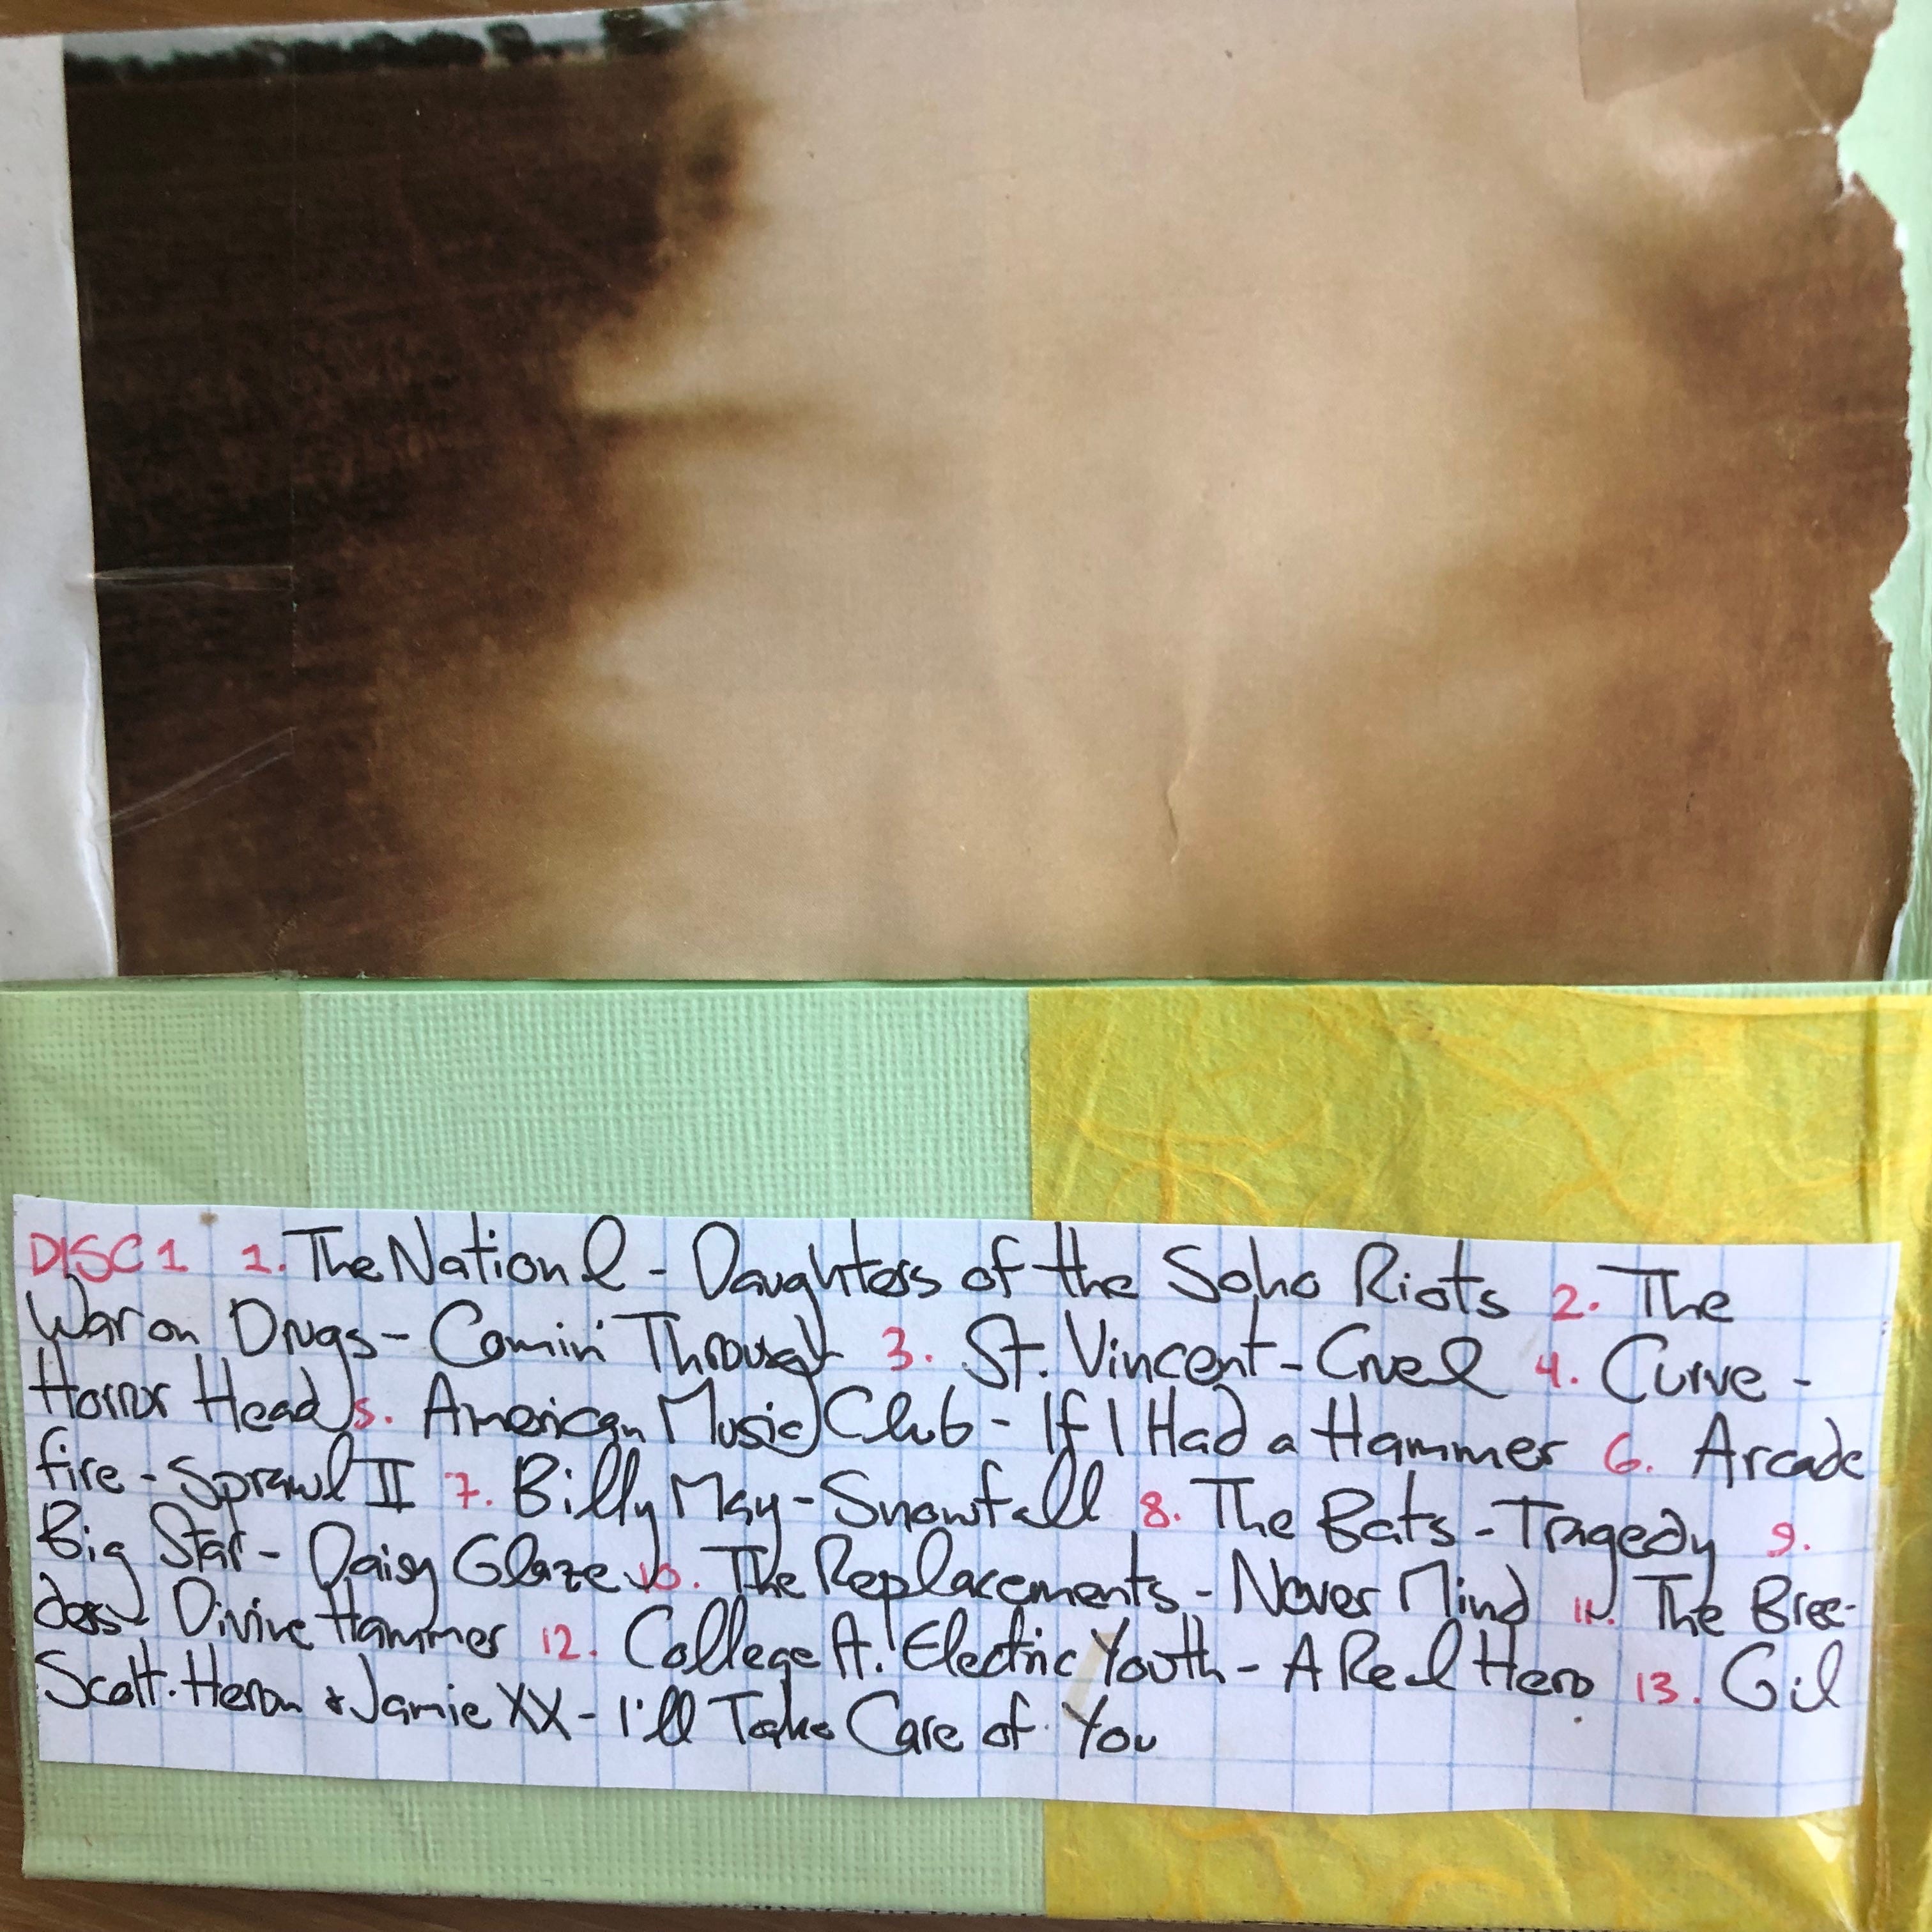 DISC 1 1. The National - Daughters of the Soho Riots 2. The
War on Drugs - Comin' Through 3. St. Vincent - Cruel 4. Curve -
Horror Head 5. American Music Club - If I Had a Hammer 6. Arcade
Fire - Sprawl II 7. Billy May - Snowfall 8. The Bats - Tragedy 9.
Big Star - Daisy Glaze 10. The Replacements - Never Mind 11. The Bree-
ders Divine Hammer 12. College ft. Electric Youth - A Real Hero 13. Gil
Scott-Heron & Jamie XX - I'll Take Care of You